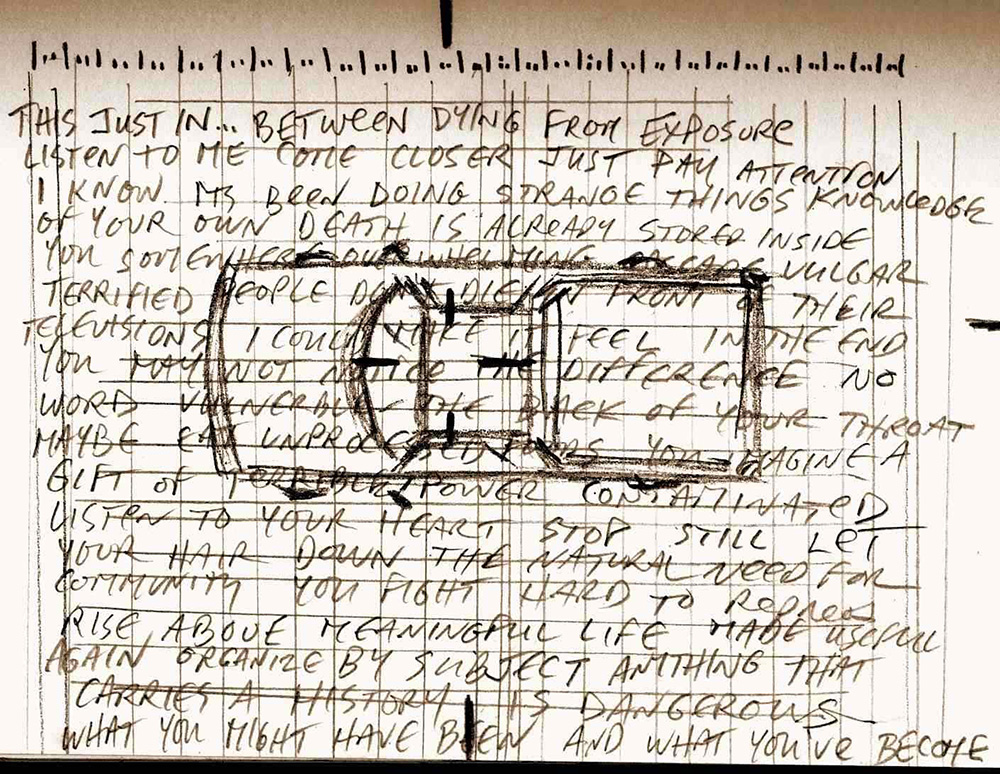 THIS JUST IN... BETWEEN DYING FROM EXPOSURE
LISTEN TO ME COME CLOSER JUST PAY ATTENTION
I KNOW ITS BEEN DOING STRANGE THINGS KNOWLEDGE
OF YOUR OWN DEATH IS ALREADY STORED INSIDE
YOU SOMEWHERE OVERWHELMING VULGAR
TERRIFIED PEOPLE DON'T DIE IN FRONT OF THEIR
TELEVISIONS I COULD MAKE IT FEEL IN THE END
YOU MAY NOT NOTICE THE DIFFERENCE NO
WORD VULNERABLE THE BACK OF YOUR THROAT
MAYBE EAT UNPROCESSED FOODS YOU IMAGINE A
GIFT OF TERRIBLE POWER CONTAMINATED
LISTEN TO YOUR HEART STOP STILL LET
YOUR HAIR DOWN THE NATURAL NEED FOR
COMMUNITY YOU FIGHT HARD TO REPRESS
RISE ABOVE MEANINGFUL LIFE MADE USEFUL
AGAIN ORGANIZE BY SUBJECT ANYTHING THAT
CARRIES A HISTORY IS DANGEROUS
WHAT YOU MIGHT HAVE BEEN AND WHAT YOU'VE BECOME